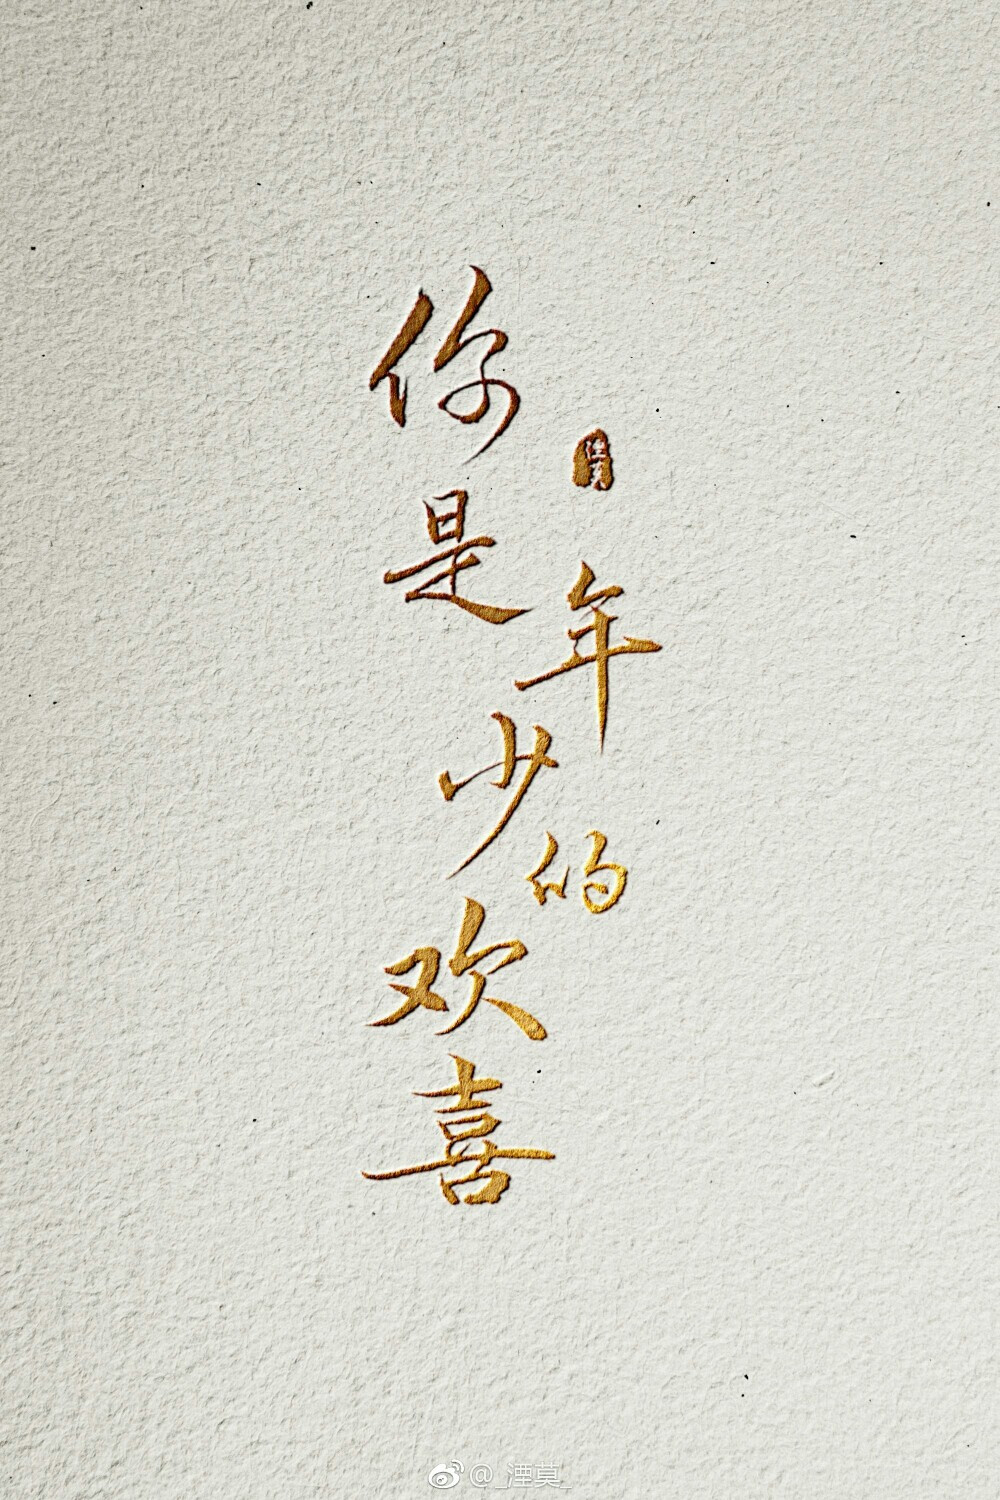 你是年少的欢喜
湮莫
@_湮莫_